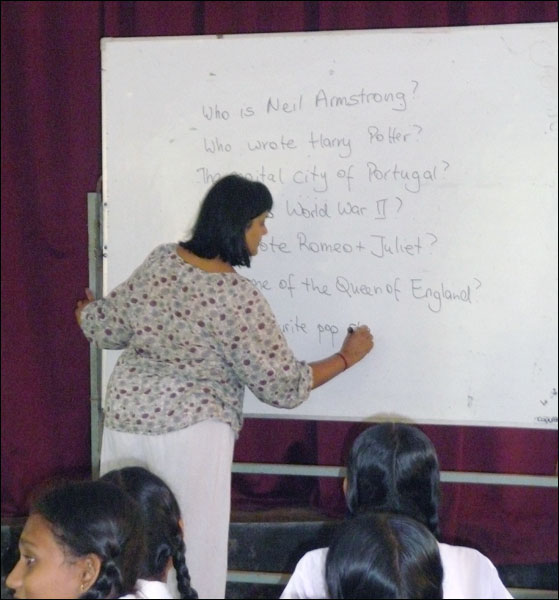 Who is Neil Armstrong?
Who wrote Harry Potter?
The capital city of Portugal?
World War II?
Romeo + Juliet?
of the Queen of England?
pop